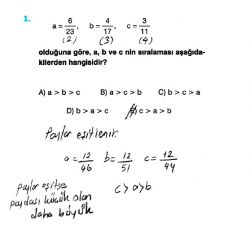 1.
a = 6/23, b = 4/17, c = 3/11
(2) (3) (4)
olduğuna göre, a, b ve c nin sıralaması aşağıda-
kilerden hangisidir?
A) a > b > c B) a > c > b C) b > c > a
D) b > a > c E) c > a > b
Paylar eşitlenir.
a = 12/46 b = 12/51 c = 12/44
paylar eşitse
paydası küçük olan
daha büyük
c > a > b